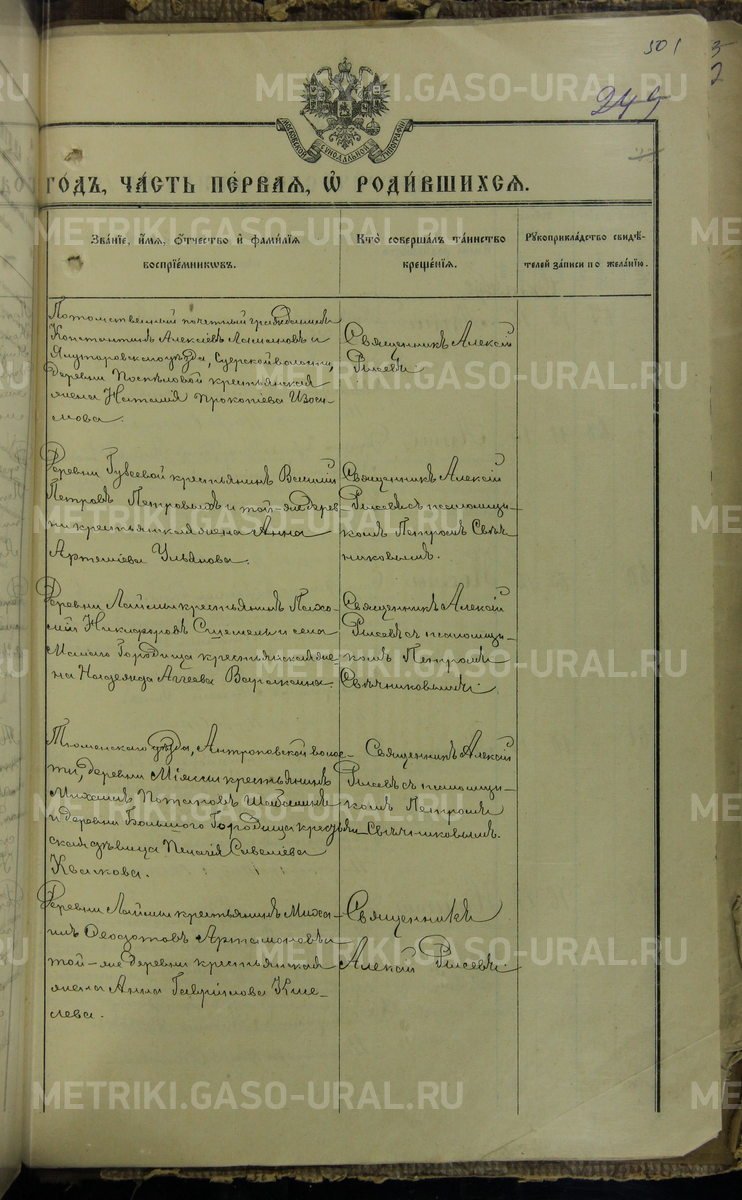 501
249
МОСКОВСКОЙ СѴНОДАЛЬНОЙ ТИПОГРАФІИ
ГОДЪ, ЧАСТЬ ПЕРВАЯ, Ѿ РОДИВШИХСЯ.
Званіе, имя, отчество и фамилія воспріемниковъ.
Кто совершалъ таинство крещенія.
Рукоприкладство свидѣтелей записи по желанію.
Потомственный почетный гражданинъ
Константинъ Алексѣевъ и
Ялуторовскаго уѣзда, Суерской волости,
деревни Поспѣловой крестьянская
жена Наталія Прокопіева Изоси-
мова.
Священникъ Алексій
Деревни Гусевой крестьянинъ Василій
Петровъ Петровыхъ и той-же дерев-
ни крестьянская жена Анна
Артеміева Ульянова.
Священникъ Алексій
съ псаломщи-
комъ Петромъ Свѣч-
никовымъ.
Деревни крестьянинъ Пахо-
мій Никифоровъ и села
Малаго Городища крестьянская же-
на Надежда Аггеева
Священникъ Алексій
съ псаломщи-
комъ Петромъ
Свѣчниковымъ.
Тюменскаго уѣзда, Антроповской волос-
ти, деревни Міяссы крестьянинъ
Михаилъ Потаповъ
и деревни Большого Городища крестьян-
ская дѣвица Пелагія Савеліева
Квашнина.
Священникъ Алексій
съ псаломщи-
комъ Петромъ
Свѣчниковымъ.
Деревни крестьянинъ Миха-
илъ Ѳеодотовъ Артамоновъ и
той-же деревни крестьянская
жена Анна Гавріилова Кисе-
лева.
Священникъ
Алексій
METRIKI.GASO-URAL.RU